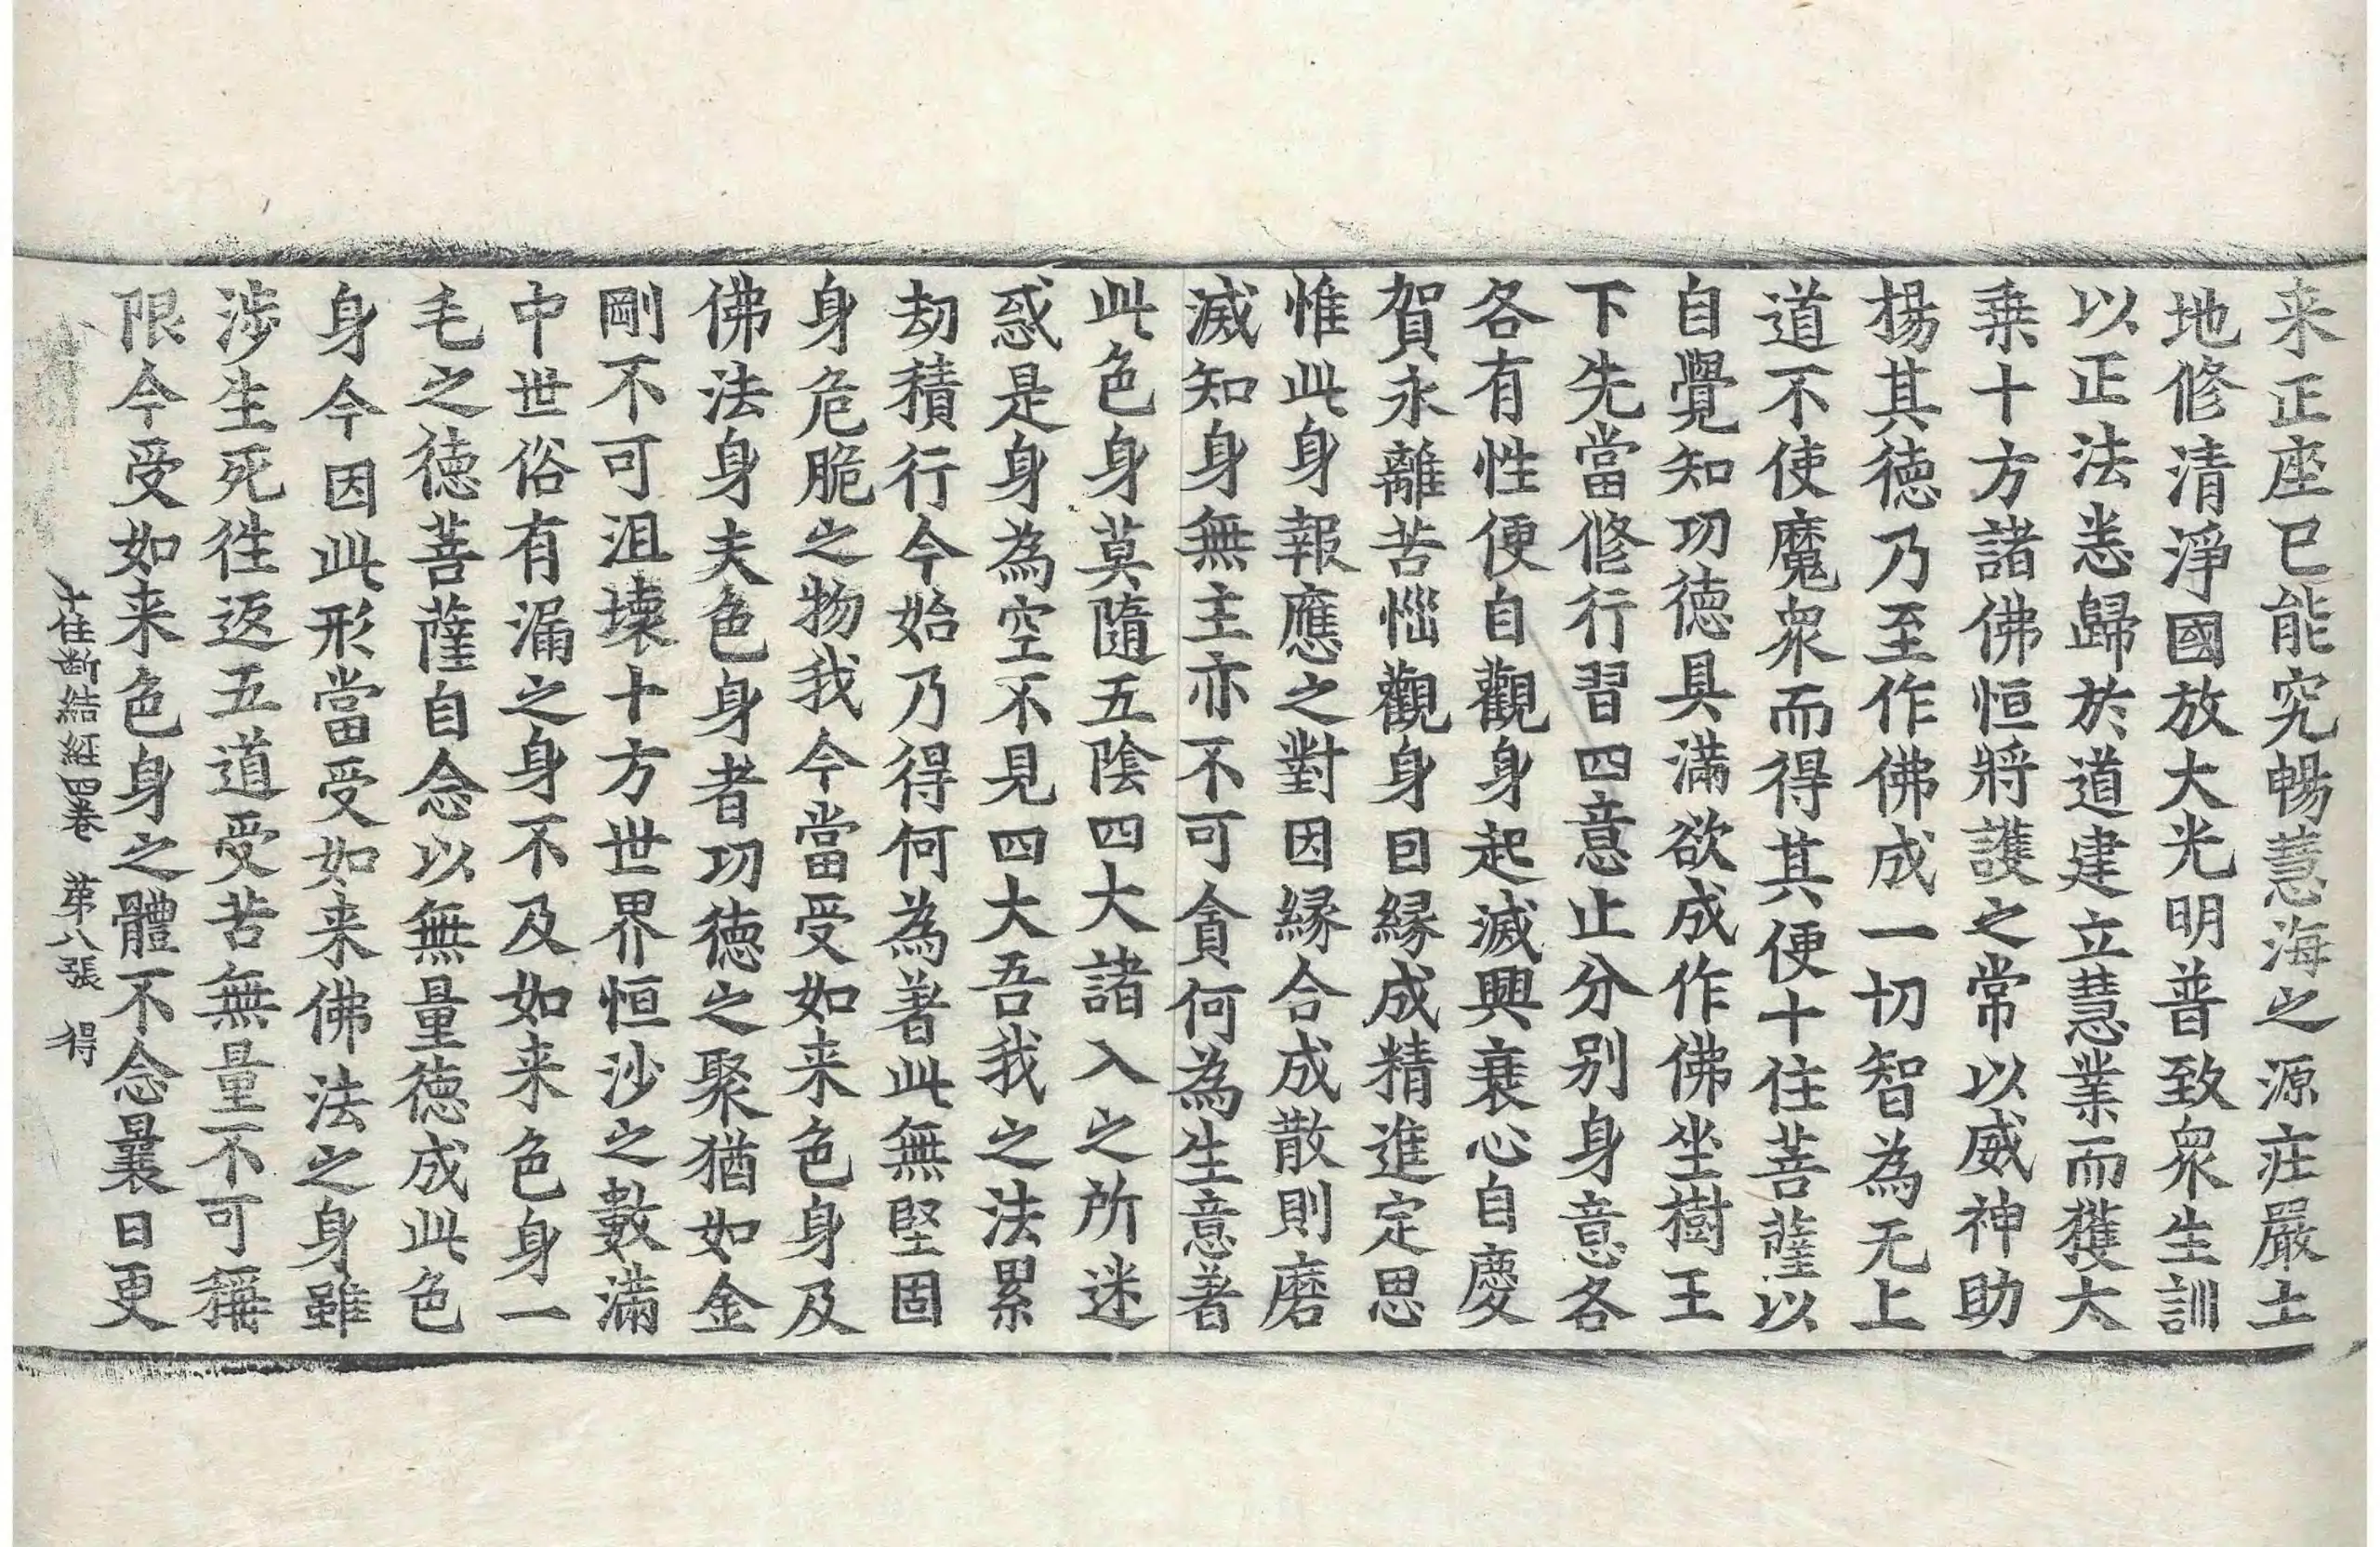 来正座已能究暢慧海之源庄嚴土
地修清淨國放大光明普致衆生訓
以正法悉歸於道建立慧業而獲大
乗十方諸佛恒將護之常以威神助
揚其徳乃至作佛成一切智為无上
道不使魔衆而得其便十住菩薩以
自覺知功徳具滿欲成作佛坐樹王
下先當修行習四意止分别身意各
各有性便自觀身起滅興衰心自慶
賀永離苦惱觀身因緣成精進定思
惟此身報應之對因緣合成散則磨
滅知身無主亦不可貪何為生意著
此色身莫隨五陰四大諸入之所迷
惑是身為空不見四大吾我之法累
劫積行今始乃得何為著此無堅固
身危脆之物我今當受如来色身及
佛法身夫色身者功徳之聚猶如金
剛不可沮壞十方世界恒沙之數滿
中世俗有漏之身不及如来色身一
毛之徳菩薩自念以無量徳成此色
身今因此形當受如来佛法之身雖
涉生死往返五道受苦無量不可稱
限今受如来色身之體不念曩日更
十住断結經四卷 苐八張 得